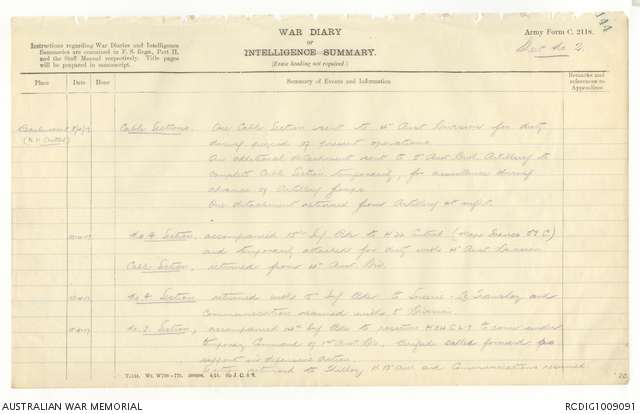 144
WAR DIARY
or
INTELLIGENCE SUMMARY.
(Erase heading not required.)
Army Form C. 2118.
Instructions regarding War Diaries and Intelligence
Summaries are contained in F. S. Regs., Part II.
and the Staff Manual respectively. Title pages
will be prepared in manuscript.
Place Date Hour Summary of Events and Information Remarks and references to Appendices
Cable Sections. One Cable Section sent to 4th Aust Division for duty
during period of present operations.
An additional detachment sent to 5 Aust Divl Artillery to
complete Cable Section temporarily, for assistance during
advance of Artillery forces.
One detachment returned from Artillery at night.
No 4 Section, accompanied 15th Inf Bde to H24 Central (Map France 57 C)
and temporarily attached for duty with 4th Aust Division
Cable Section, returned from 4th Aust Div.
No 4 Section returned with 15 Inf Bde to and
Communication resumed with Division
No 3 Section, accompanied 14th Inf Bde to position to come under
temporary Command of 1st Aust Div. Brigade called forward for
support in defensive action.
Section returned to and Communications resumed
AUSTRALIAN WAR MEMORIAL
RCDIG1009091